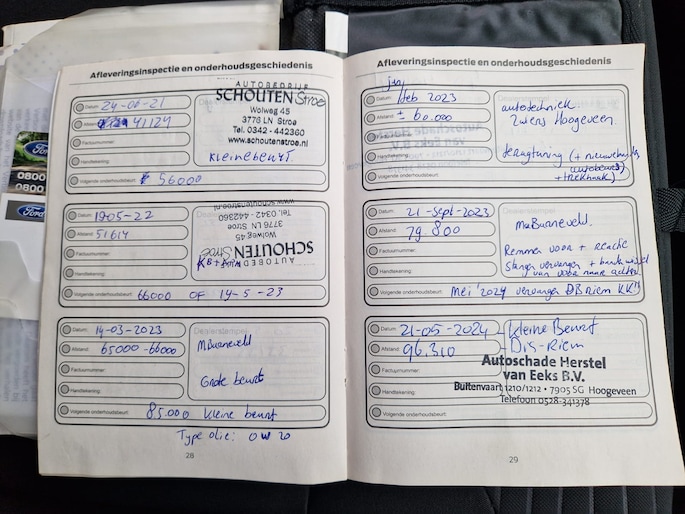 Afleveringsinspectie en onderhoudsgeschiedenis
Datum: 24-06-21
Afstand: 41124
Factuurnummer:
Handtekening:
Volgende onderhoudsbeurt: 56000
AUTOBEDRIJF
SCHOUTEN Stroe
Wolweg 45
3776 LN Stroe
Tel. 0342 - 442360
www.schoutenstroe.nl
Kleine beurt
Datum: 19-05-22
Afstand: 51614
Factuurnummer:
Handtekening:
Volgende onderhoudsbeurt: 66000 OF 19-5-23
www.schoutenstroe.nl
Tel. 0342-442360
3776 LN Stroe
Wolweg 45
SCHOUTEN Stroe
AUTOBEDRIJF
Datum: 14-03-2023
Afstand: 65000-66000
Factuurnummer:
Handtekening:
Volgende onderhoudsbeurt: 85.000 kleine beurt
Dealerstempel:
Grote beurt
Type olie: 0W20
28
Afleveringsinspectie en onderhoudsgeschiedenis
jan/
Datum: feb 2023
Afstand: ± 60.000
Handtekening:
Volgende onderhoudsbeurt:
autotechniek
Hoogeveen
+ trekhaak)
Datum: 21-Sept-2023
Afstand: 79.800
Factuurnummer:
Handtekening:
Volgende onderhoudsbeurt: Mei '2024 vervangen DB riem
Remmen voor +
vervangen +
van voor naar achter
Datum: 21-05-2024
Afstand: 96.310
Factuurnummer:
Handtekening:
Volgende onderhoudsbeurt:
- Kleine Beurt
- Dis-Riem
Autoschade Herstel
van Eeks B.V.
Buitenvaart 1210/1212 • 7905 SG Hoogeveen
Telefoon 0528-341378
29
Ford
0800
0800
Ford